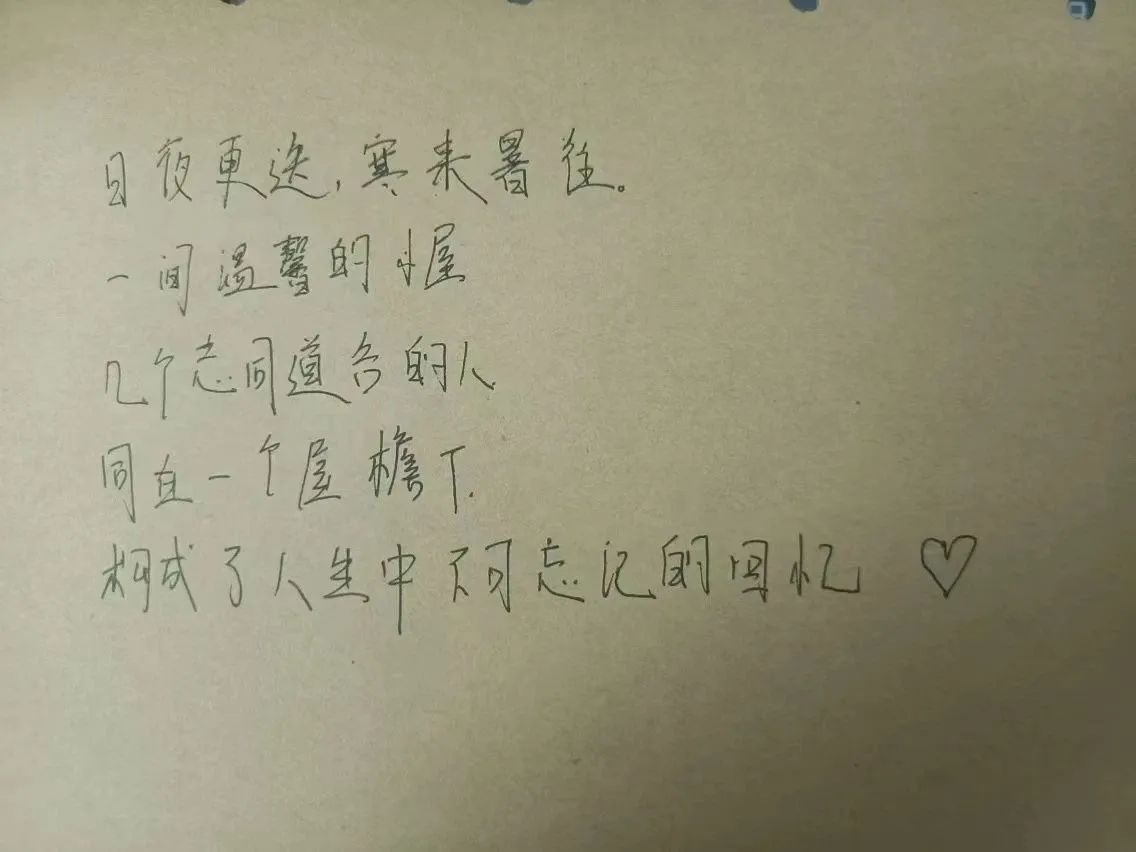 日夜更迭,寒来暑往。
一间温馨的小屋
几个志同道合的人
同在一个屋檐下.
构成了人生中不可忘记的回忆 ♡